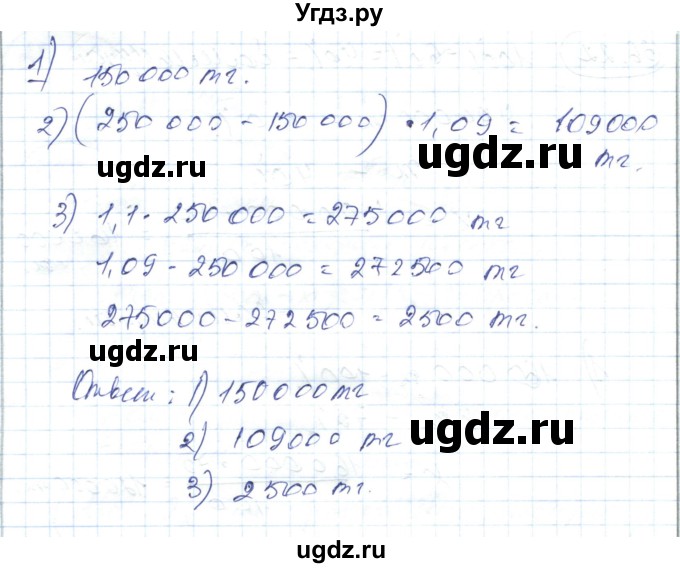 Угдз.ру
1) 150 000 тг.
2) (250 000 - 150 000) • 1,09 = 109000 тг.
ugdz.ru ugdz.ru
3) 1,1 • 250 000 = 275000 тг
1,09 - 250 000 = 272500 тг
275000 - 272 500 = 2500 тг.
ugdz.ru
Ответ: 1) 150 000 тг
2) 109000 тг
ugdz.ru
3) 2500 тг.
ugdz.ru